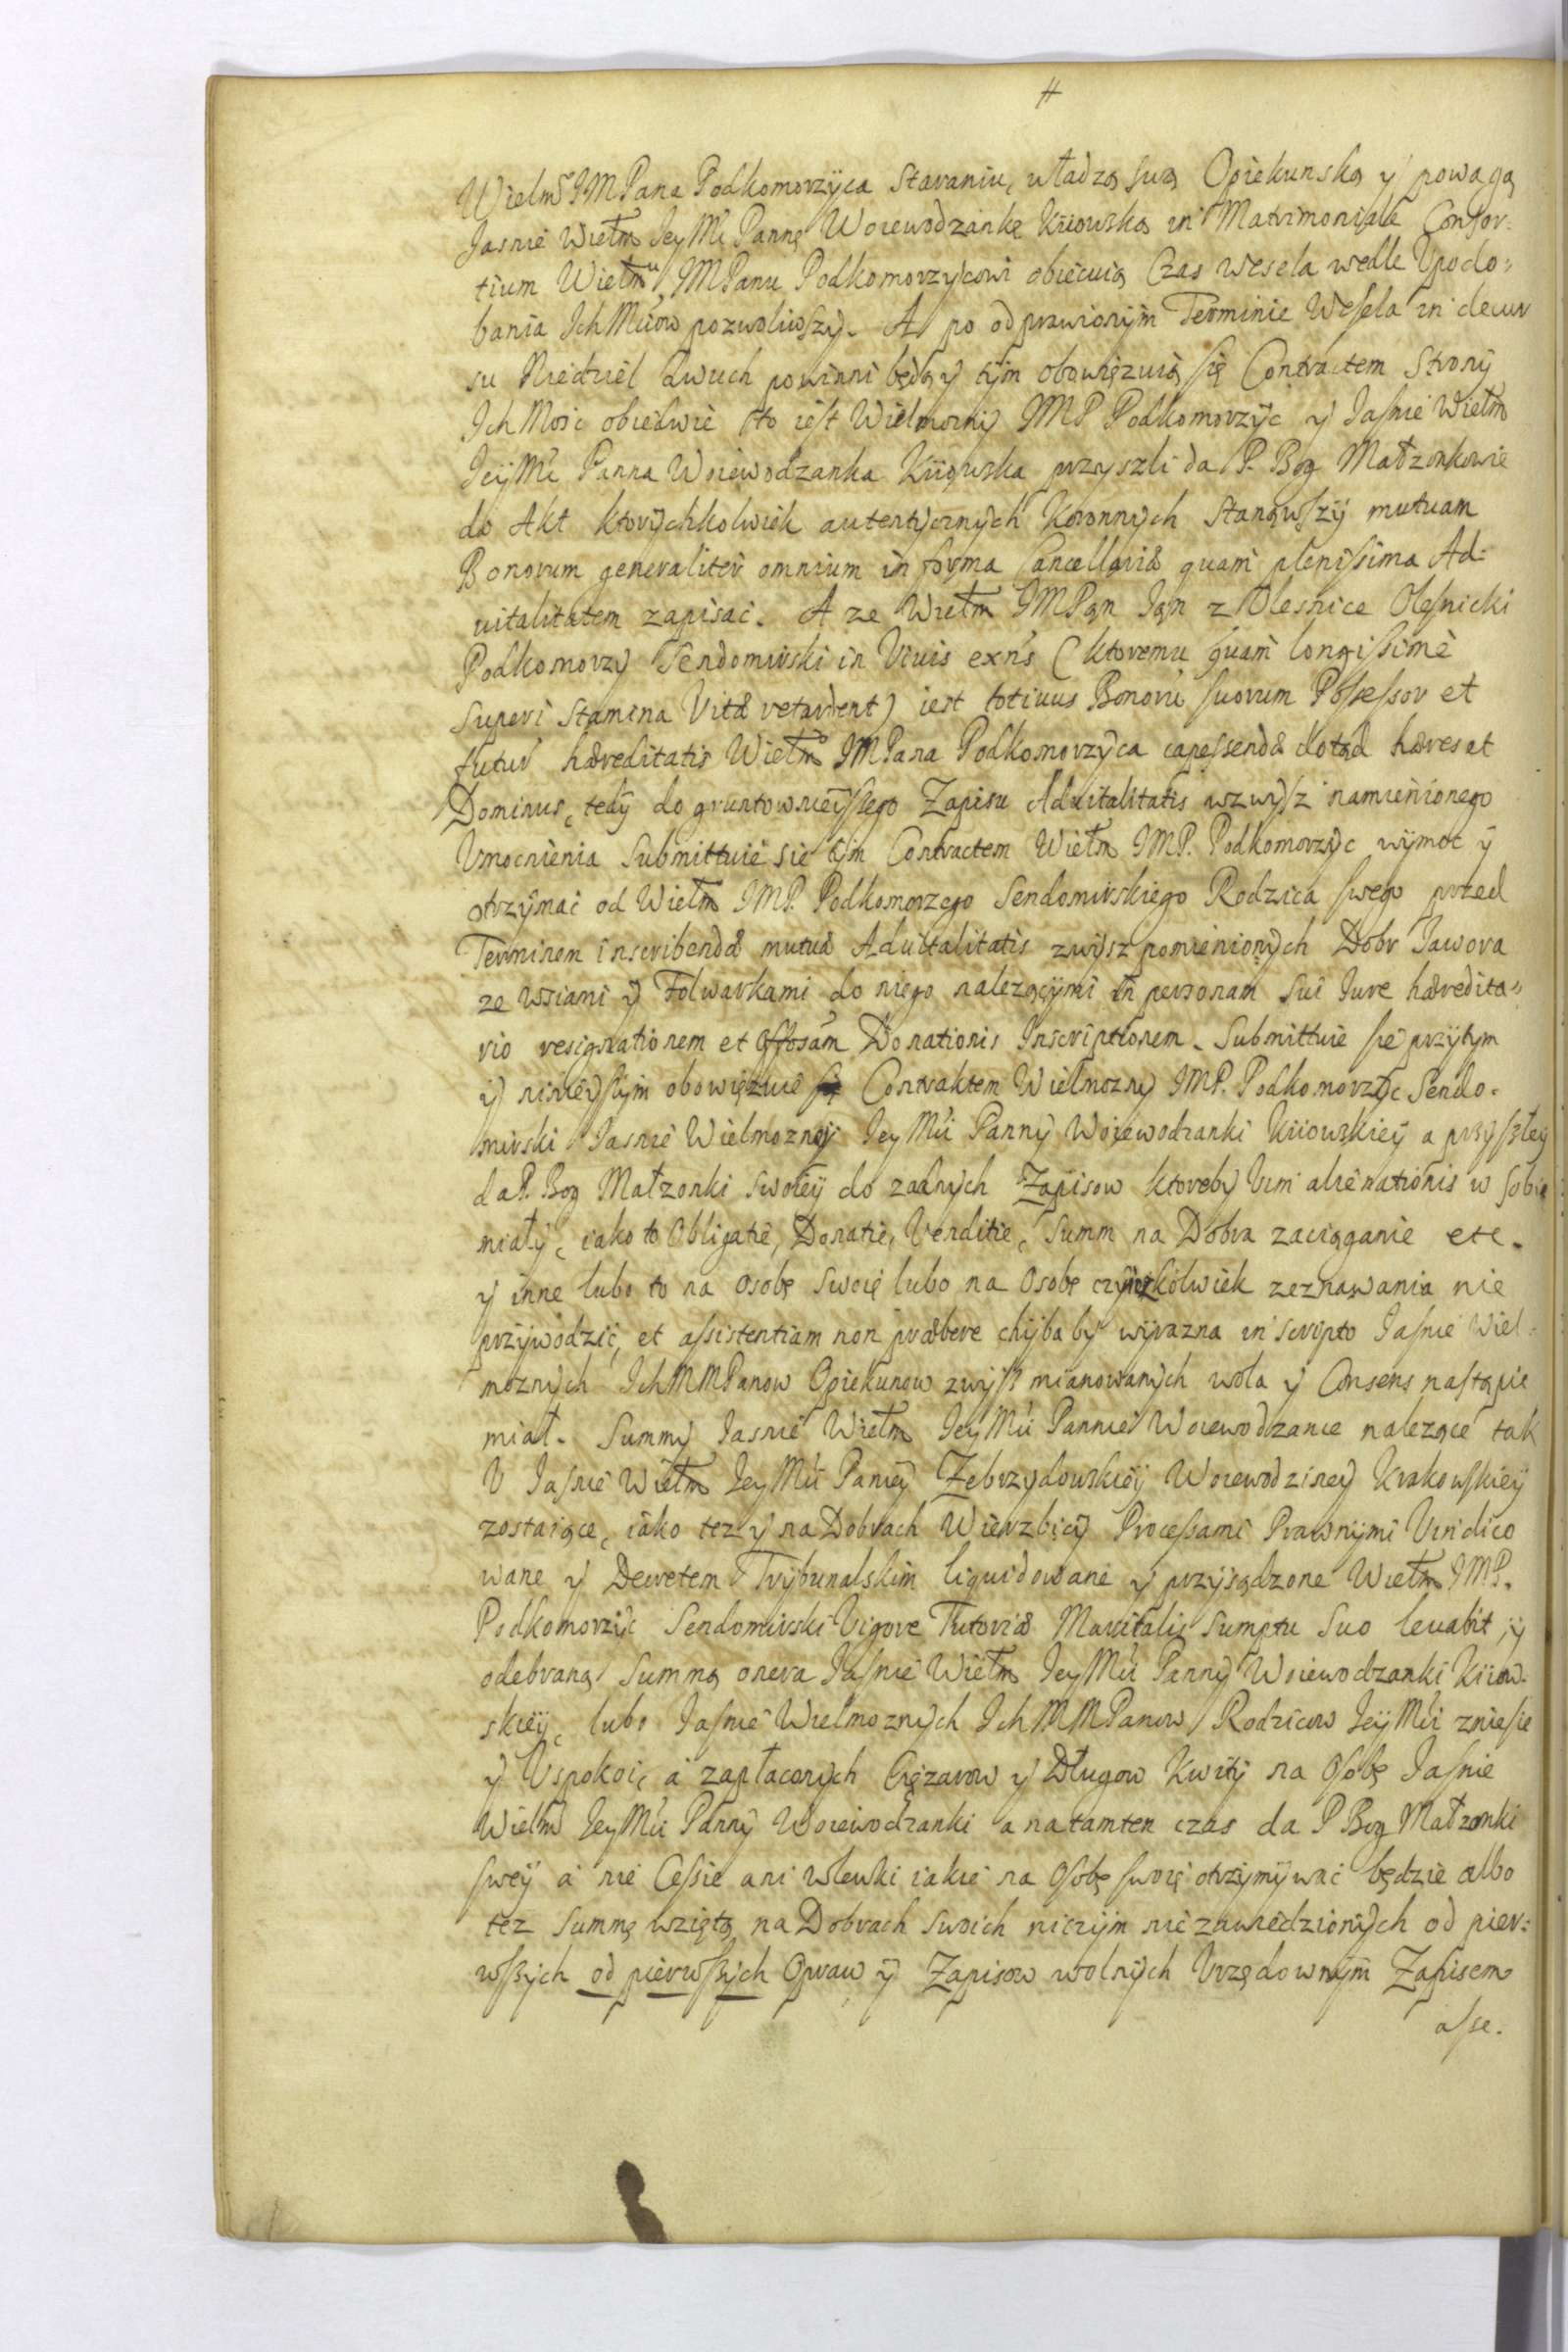 #
Wielmº IMPana Podkomorzÿca staraniu, władzą swą Opiekunską ÿ powagą
Jasnie Wielm JeyMć Pannę Woiewodzankę Kiiowską in Matrimoniale Consor-
tium Wielmu IMPanu Podkomorzÿcowi obiecuią Czas wesela wedle Upodo-
bania Ich Mćiow pozwoliwszÿ. A po odprawionÿm Terminie Wesela in decur
su Niedziel dwuch powinni będą ÿ tÿm obowięzuią się Contractem Stronÿ
Ich Mośc obiedwie to iest Wielmoznÿ IMP Podkomorzÿc ÿ Jasnie Wielm
JeÿMć Panna Woiewodzanka Kiiowska przyszli da P. Bog Małzonkowie
do Akt ktorÿchkolwiek autentÿcznÿch Koronnÿch stanąwszÿ mutuam
Bonorum generaliter omnium in forma Cancellariæ quam plenissima Ad-
vitalitatem zapisać. A ze Wielm IMPan Jan z Olesnice Olesnicki
Podkomorzÿ Sendomirski in Vivis exns (ktoremu quam longissime
superi stamina Vitæ retardent) iest totivus Bonorū suorum Possessor et
futur hæreditatis Wielmo IMPana Podkomorzÿca capessendæ dotąd hæres et
Dominus, tedÿ do gruntownieÿszego Zapisu Advitalitatis wzwÿsz namienionego
Umocnienia Submittuie sie tÿm Contractem Wielm IMP. Podkomorzÿc wÿmoc ÿ
otrzÿmać od Wielm IMP. Podkomorzego Sendomirskiego Rodzica swego przed
Terminem inscribendæ mutuæ Advitalitatis zwÿsz pomienionÿch Dobr Jawora
ze wsiami ÿ Folwarkami do niego nalezącÿmi in personam sui Iure hæredita-
rio resignationem et Donationis Inscriptionem. Submittuie sie przÿtym
ÿ ninieÿszÿm obowięzuie się Contraktem Wielmoznÿ IMP. Podkomorzÿc Sendo-
mirski Jasnie Wielmozneÿ Jey Mći Pannÿ Woiewodzanki Kiiowskieÿ a przyszłey
da P. Bog Małzonki swoieÿ do zadnÿch Zapisow ktoreby Vim alienationis w sobie
miałÿ, iako to Obligatie, Donatie, Venditie, Summ na Dobra zaciąganie etc.
ÿ inne lubo to na osobę swoię lubo na Osobę czyiszkolwiek zeznawania nie
przÿwodzić, et assistentiam non præbere chÿba by wÿrazna in scripto Jasnie Wiel-
moznÿch IchMMPanow Opiekunow zwÿsz mianowanÿch wola ÿ Consens nastąpic
miał. Summÿ Jasnie Wielm JeÿMći Pannie Woiewodzance nalezące tak
U Jasnie Wielm JeyMći Panieÿ Zebrzydowskieÿ Woiewodzineÿ Krakowskieÿ
zostaiące, iako tez ÿ na Dobrach Wierzbicÿ Processami Prawnÿmi Vindico
wane ÿ Dewretem Trÿbunalskim liquidowane ÿ przÿsądzone Wielm IMP.
Podkomorzÿc Sendomirski Vigore Tutoriæ Maritalis Sumptu Suo levabit, ÿ
odebraną Summą onera Jasnie Wielm JeyMći Pannÿ Woiewodzanki Kiiow-
skieÿ, lubo Jasnie Wielmoznÿch IchMMPanow Rodzicow JeÿMći zniesie
ÿ Uspokoi, a zapłaconÿch Cięzarow ÿ Długow Kwitÿ na Osobę Jasnie
Wielm JeyMći Pannÿ Woiewodzanki a natamten czas da P Bog Małzonki
sweÿ a nie Cessie ani wlewki iakie na Osobę swoię otrzÿmÿwać będzie albo
tez summę wziętą na Dobrach swoich niczÿm nie zawiedzionÿch od pier-
wszÿch od pierwszÿch Opraw ÿ Zapisow wolnÿch Urzędownÿm Zapisem
asse.